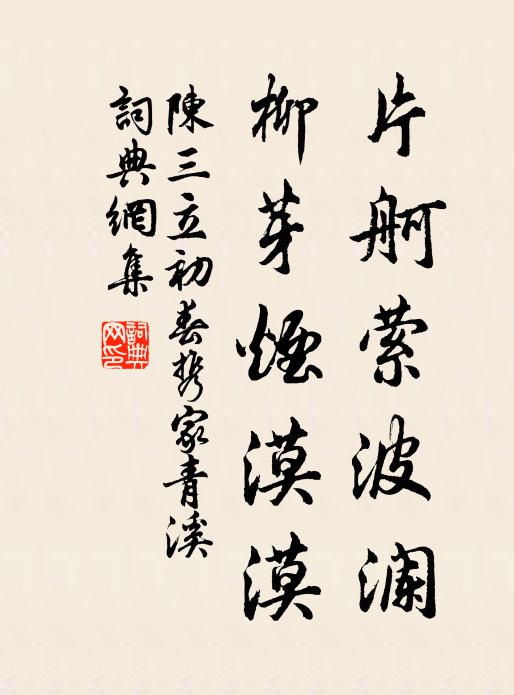 片舸萦波澜
柳芽煙漠漠
陳三立初春携家青溪
詞典網集
詞典網印